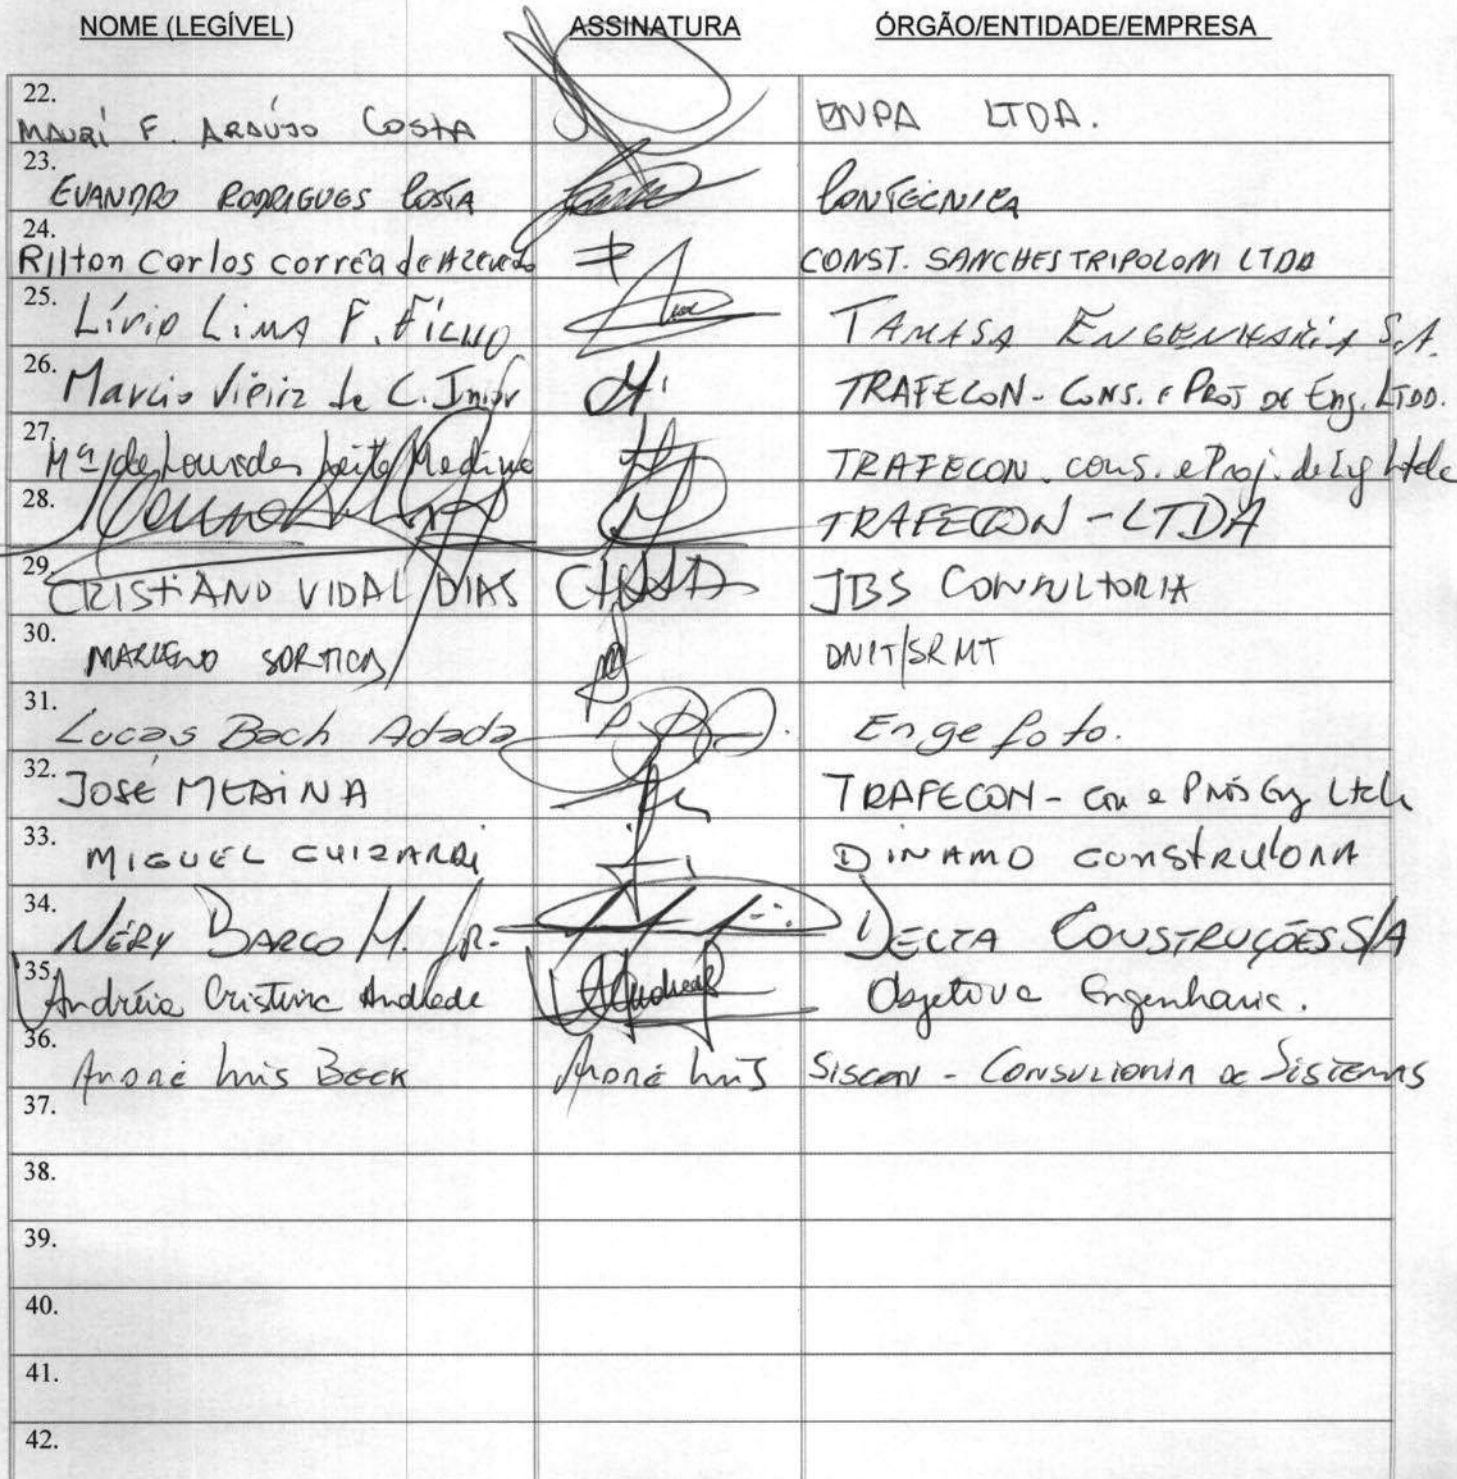 NOME (LEGÍVEL) ASSINATURA ÓRGÃO/ENTIDADE/EMPRESA
22.
MAURÍ F. ARAÚJO COSTA ENPA LTDA.
23.
EVANDRO RODRIGUES COSTA CONTÉCNICA
24.
Rilton Carlos corrêa de Azevedo CONST. SANCHES TRIPOLONI LTDA
25.
Lívio Lima F. Filho TAMASA ENGENHARIA S.A.
26.
Marcio Vieira de C. Junior TRAFECON - CONS. e PROJ DE Eng. LTDA.
27.
Mª de Lourdes Leite Medina TRAFECON. cons. e Proj. de Eng Ltda
28.
TRAFECON - LTDA
29.
CRISTIANO VIDAL DIAS JBS CONSULTORIA
30.
SORTICA DNIT/SRMT
31.
Lucas Bach Adada Engefoto.
32.
JOSÉ MEDINA TRAFECON - Con e Proj Eng Ltda
33.
MIGUEL GUIZARDI DINAMO CONSTRUTORA
34.
NERY BARCO M. JR. DELTA CONSTRUÇÕES S/A
35.
Andréia Cristina Andrade Andreia Objetiva Engenharia.
36.
André Luis BECK André Luis SISCON - CONSULTORIA DE SISTEMAS
37.
38.
39.
40.
41.
42.